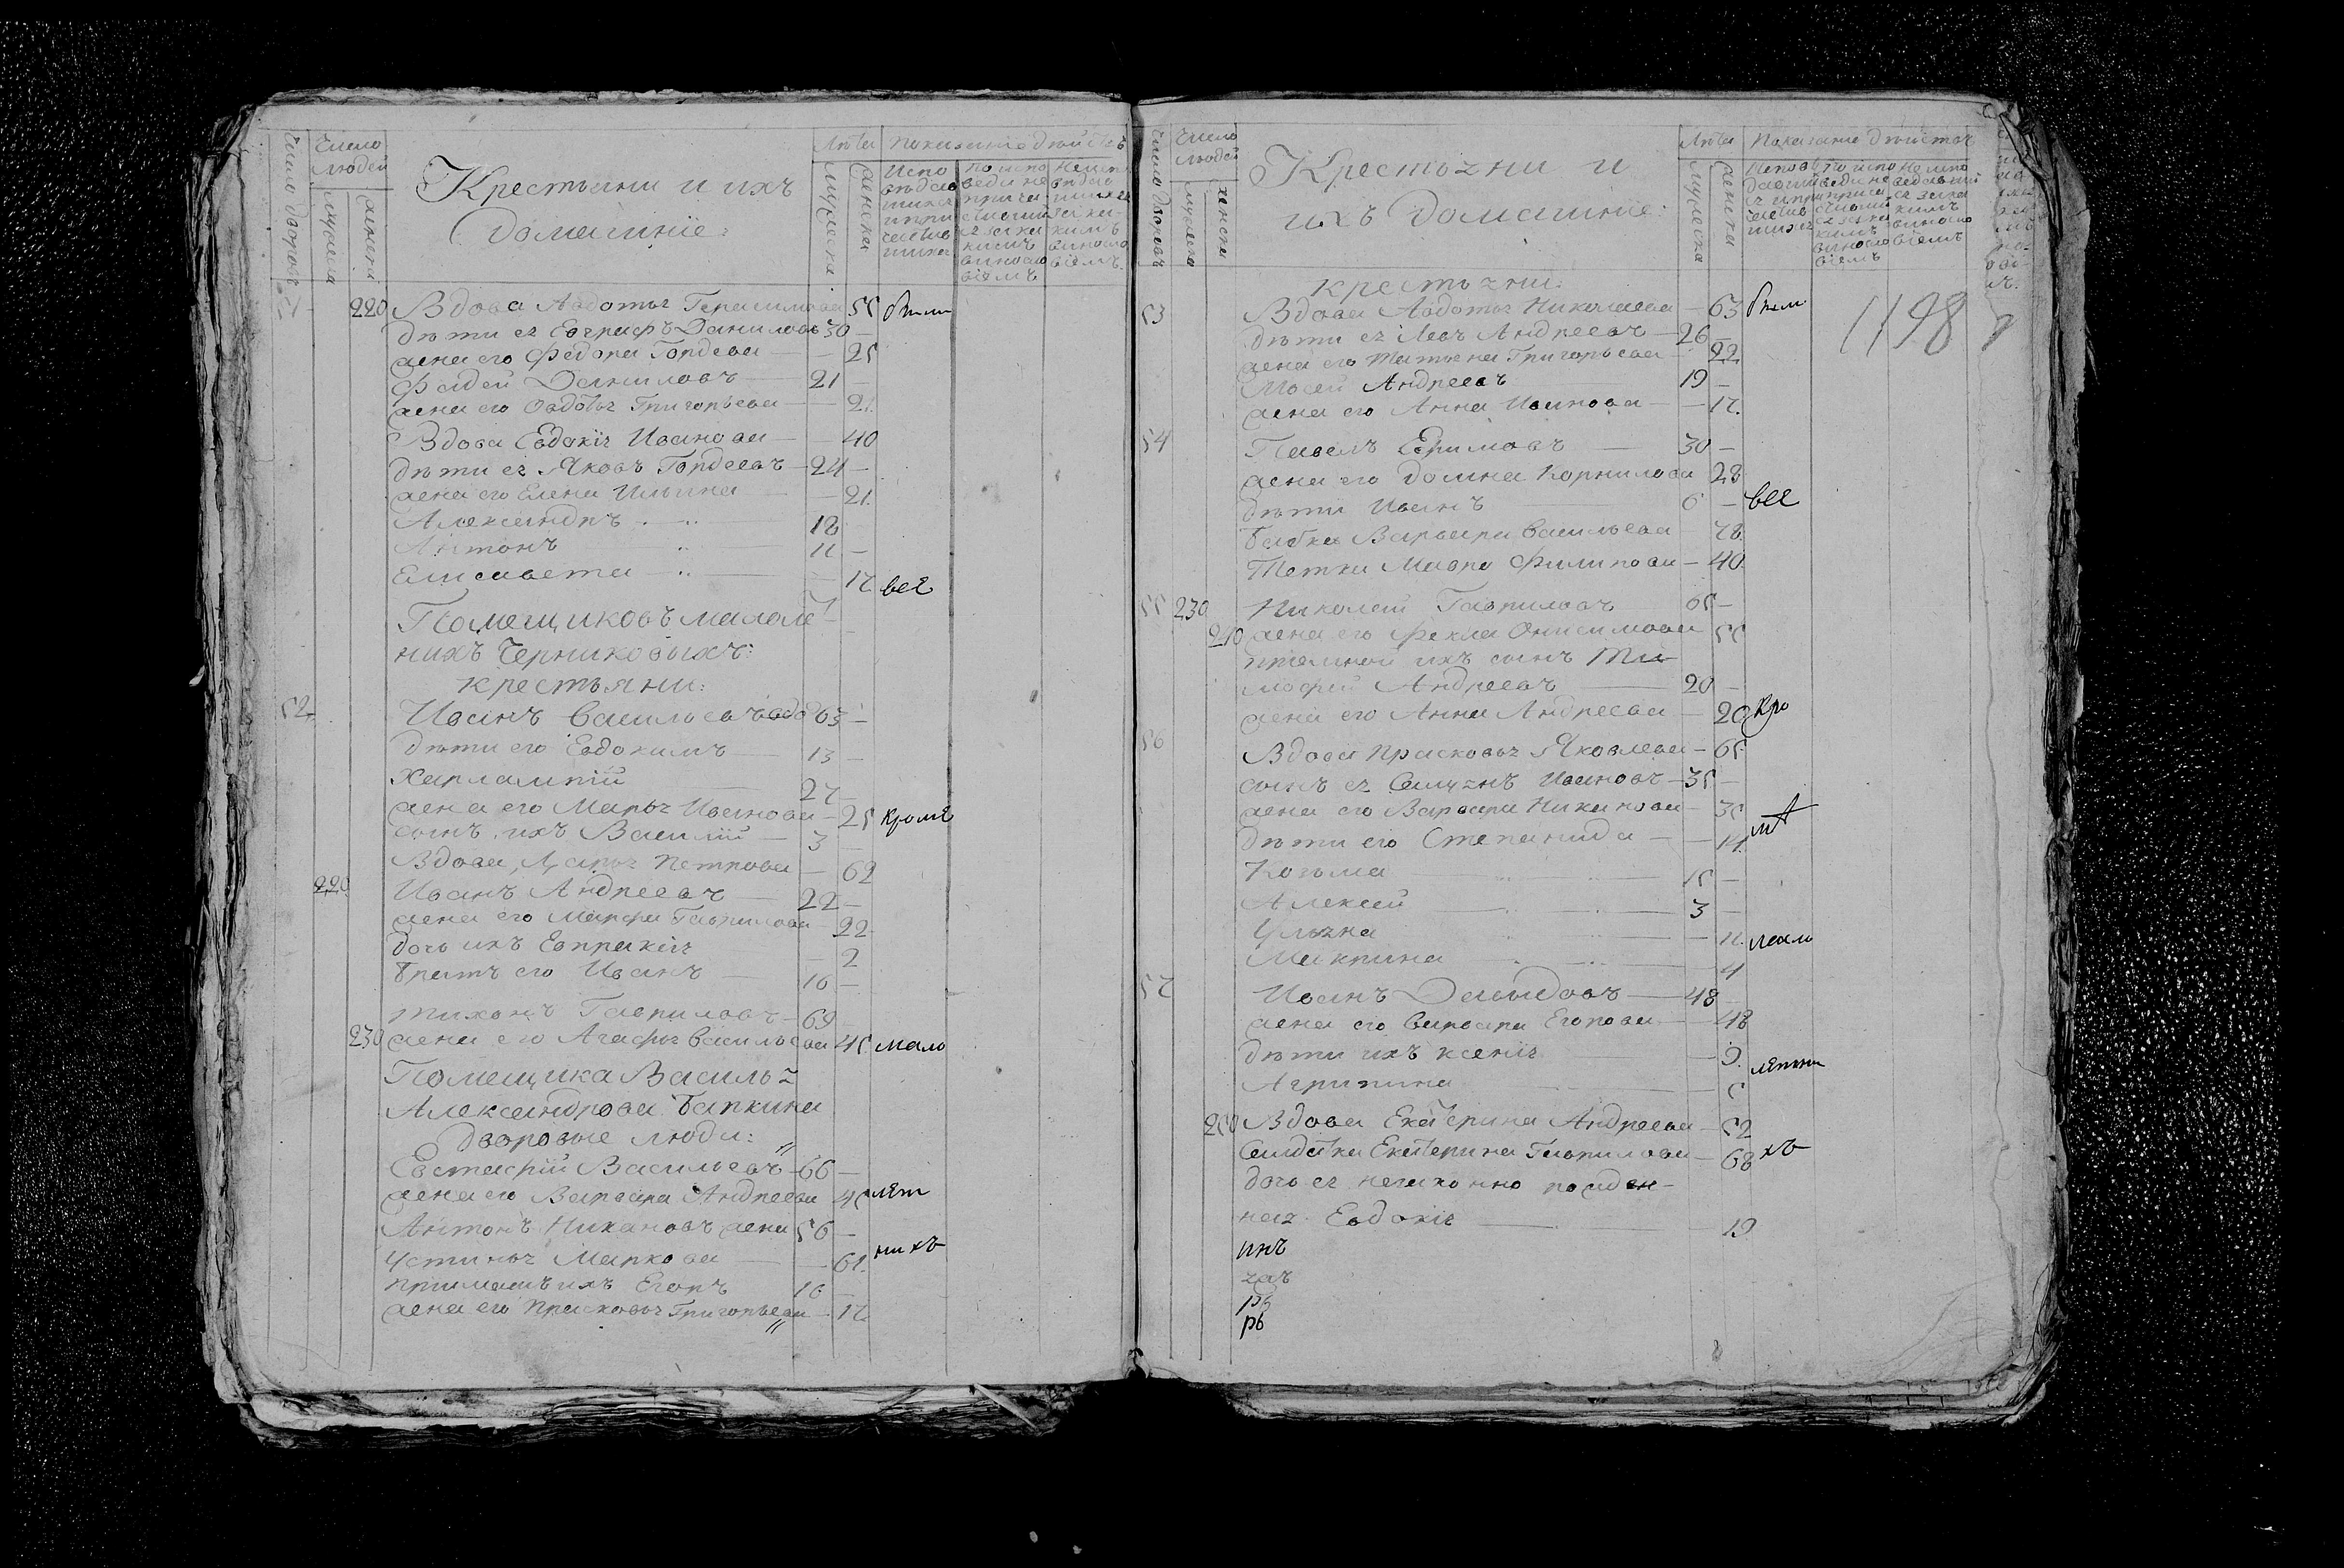 Число дворовъ
Число людей
мужеска
женска
Крестьяни и ихъ
домашніе:
Лѣта
мужеска
женска
Показаніе дѣйствъ
Испо
вѣдов
шихся
и при
частив
шихся
По испо
веди не
прича
стивши
ся за ка
кимъ
виносло
віемъ
Неисп
вѣдав
шихся
за ка-
кимъ
виносло
віемъ
51 220 Вдова Авдотья Герасимова 55 Всѣми
дѣти ея Евграфъ Даниловъ 30 —
жена его Федора Гордева — 25
Фадей Даниловъ 21 —
жена его Овдотья Григорьева — 21.
Вдова Евдокія Иванова — 40
дѣти ея Яковъ Гордеевъ 24 —
жена его Елена Ильина — 21.
Александръ 18
Антонъ 11 —
Елисавета — 17 все
Помещиковъ малолѣ
нихъ Черниковыхъ:
крестьяни:
52 Иванъ Васильевъ вдо 63 —
дѣти его Евдокимъ 13 —
Харлампій 27 —
жена его Марья Иванова — 25 кромѣ
сынъ ихъ Василій 3 —
Вдова Дарья Петрова — 62
220 Иванъ Андреевъ 22 —
жена его Марфа Гаврилова 22
дочь ихъ Евпракія — 2
братъ его Иванъ 16 —
Тихонъ Гавриловъ 69
230 жена его Агафья Васильева 45 мало
Помещика Василья
Александрова Бапкина
дворовые люди:
Евстафій Васильевъ 66 —
жена его Варвара Андреева 45 лѣт
Антонъ Никановъ жена 56 —
Устинья Маркова — 61. нихъ
примашъ ихъ Егоръ 16 —
жена его Прасковья Григорьева 17
Число дворовъ
Число людей
мужеска
женска
Крестьяни и
ихъ домашніе:
Лѣта
мужеска
женска
Показаніе дѣйствъ
крестьяни:
1198
53 Вдова Авдотья Николаева — 63 Всѣм
дѣти ея Левъ Андреевъ 26 —
жена его Татьяна Григорьева 22
Мосей Андреевъ 19 —
жена его Анна Иванова — 17.
54 Павелъ Ефимовъ 30 —
жена его Домна Корнилова 28
дѣти Иванъ 6 — все
бабка Варвара Васильева 78
Тетка Мавра Филипова — 40
55 230 Николай Гавриловъ 65 —
240 жена его Фекла Онисимова 55
приемной ихъ сынъ Ти
мофей Андреевъ 20 —
жена его Анна Андреева — 20 кро
56 Вдова Прасковья Яковлева — 65
сынъ ея Семенъ Ивановъ 35 —
жена его Варвара Никинова — 35
дѣти его Степанида — 14 мѣ
Козьма 15 —
Алексей 3 —
Ульяна — 11. мало
Макрина 4
57 Иванъ Давыдовъ 48 —
жена его Варвара Егорова 48
дѣти ихъ Ксенія — 9.
лѣтни
Агрипина 5
250 Вдова Екатерина Андреева 52
Салдатка Екатерина Гаврилова — 68 хъ
дочь ея незаконно рожден-
ная Евдокія 19